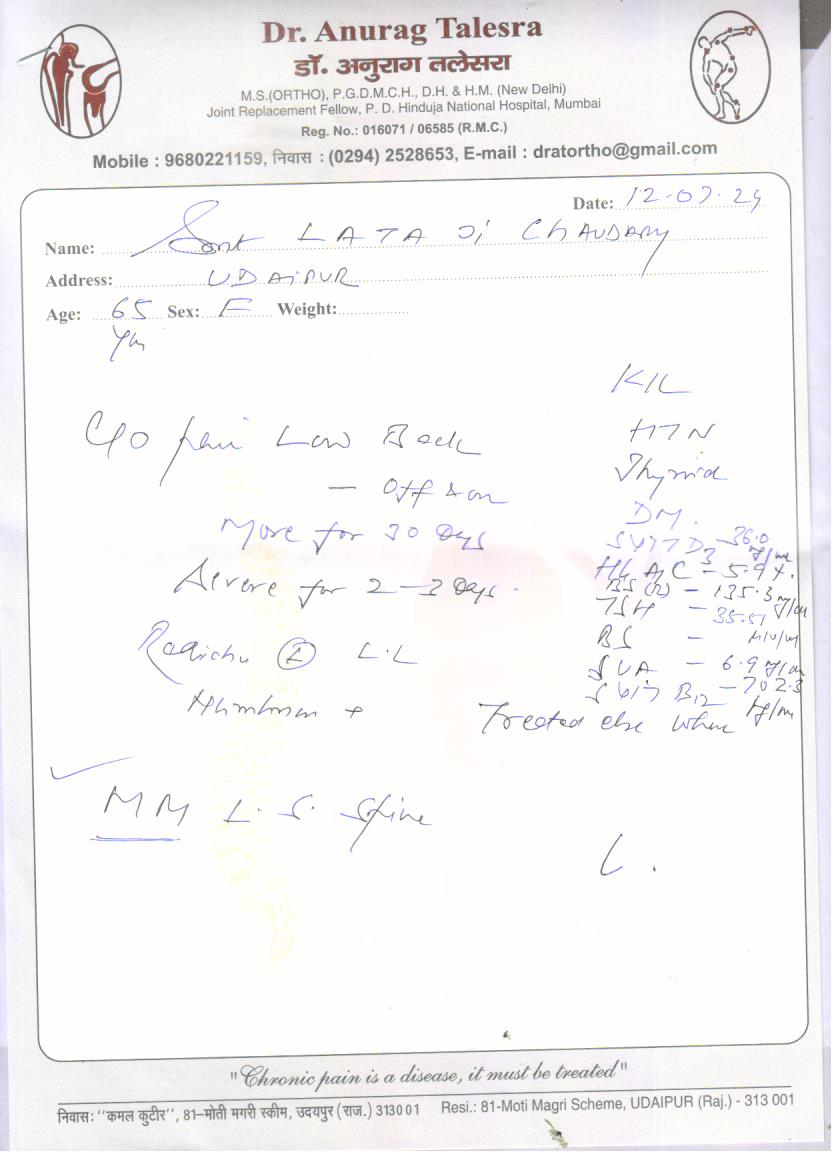 Dr. Anurag Talesra
डॉ. अनुराग तलेसरा
M.S.(ORTHO), P.G.D.M.C.H., D.H. & H.M. (New Delhi)
Joint Replacement Fellow, P. D. Hinduja National Hospital, Mumbai
Reg. No.: 016071 / 06585 (R.M.C.)
Mobile : 9680221159, निवास : (0294) 2528653, E-mail : dratortho@gmail.com
Date: 12.07.24
Name: Smt LATA Ji CHAUDARY
Address: UDAIPUR
Age: 65 Sex: F Weight:
Yrs
K/C
C/O pain Low Back
HTN
Thyroid
— Off & on
DM.
More for 30 Days
S VIT D3 36.0
Hb A1C - 5.9 %.
Severe for 2-3 Days.
BS (R) - 135.3 mg/
TSH - 35.51
BS -
L.L
S UA - 6.9
S VIT B12 - 702.3
Numbness +
Treated else where
L. S. Spine
"Chronic pain is a disease, it must be treated"
निवास: "कमल कुटीर", 81-मोती मगरी स्कीम, उदयपुर (राज.) 313001 Resi.: 81-Moti Magri Scheme, UDAIPUR (Raj.) - 313 001